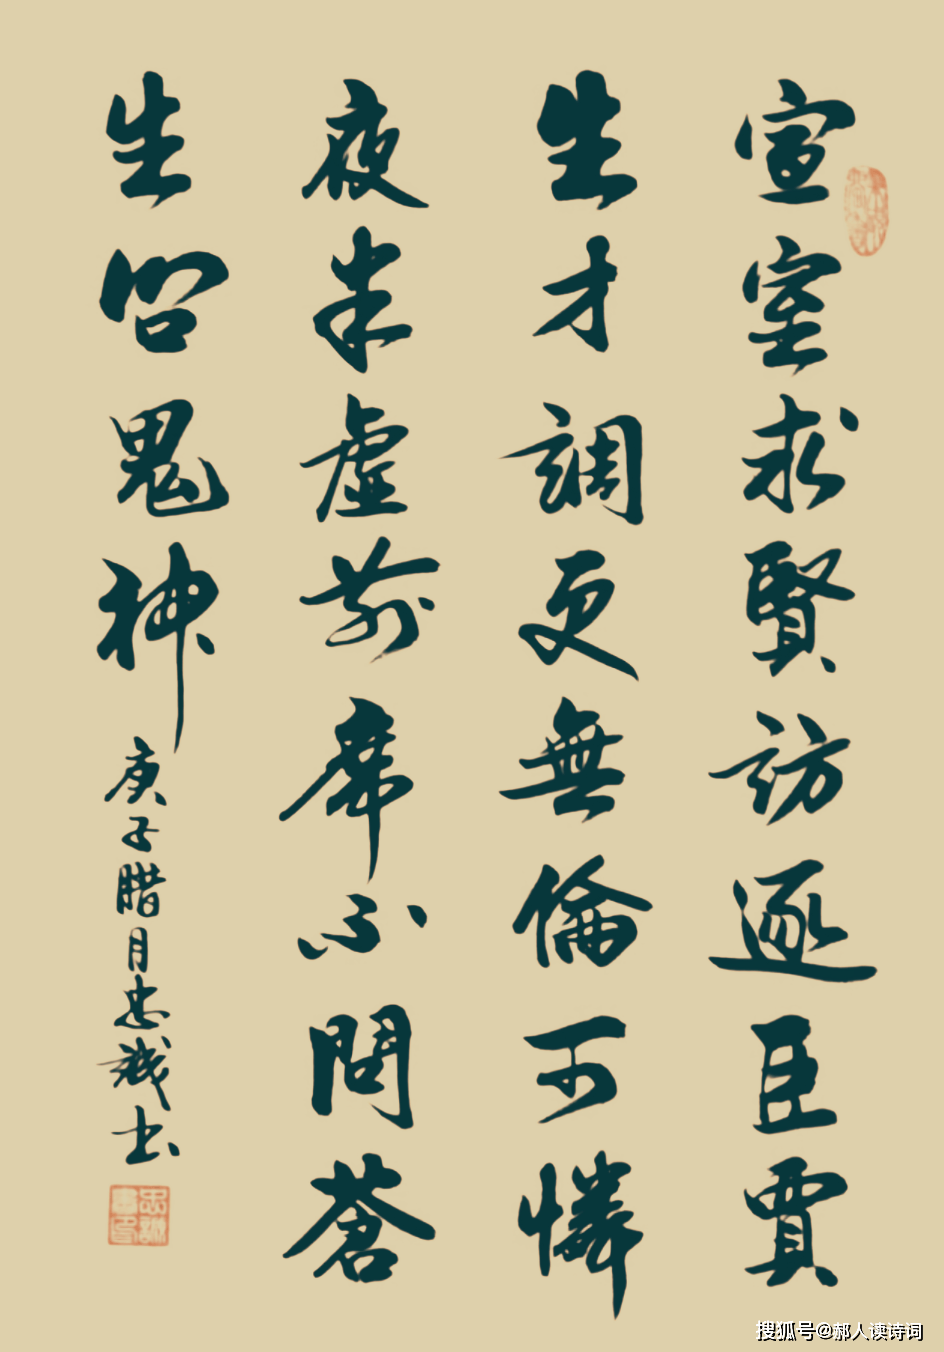 宣室求賢訪逐臣賈
生才調更無倫可憐
夜半虚前席不問蒼
生問鬼神
庚子腊月忠誠书
忠誠書印
搜狐号@郝人读诗词